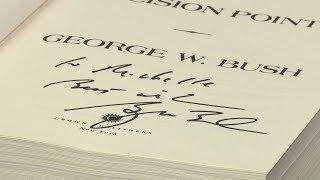 CISION POINT
GEORGE W. BUSH
to Michelle
Best wishes
CROWN PUBLISHERS
New York